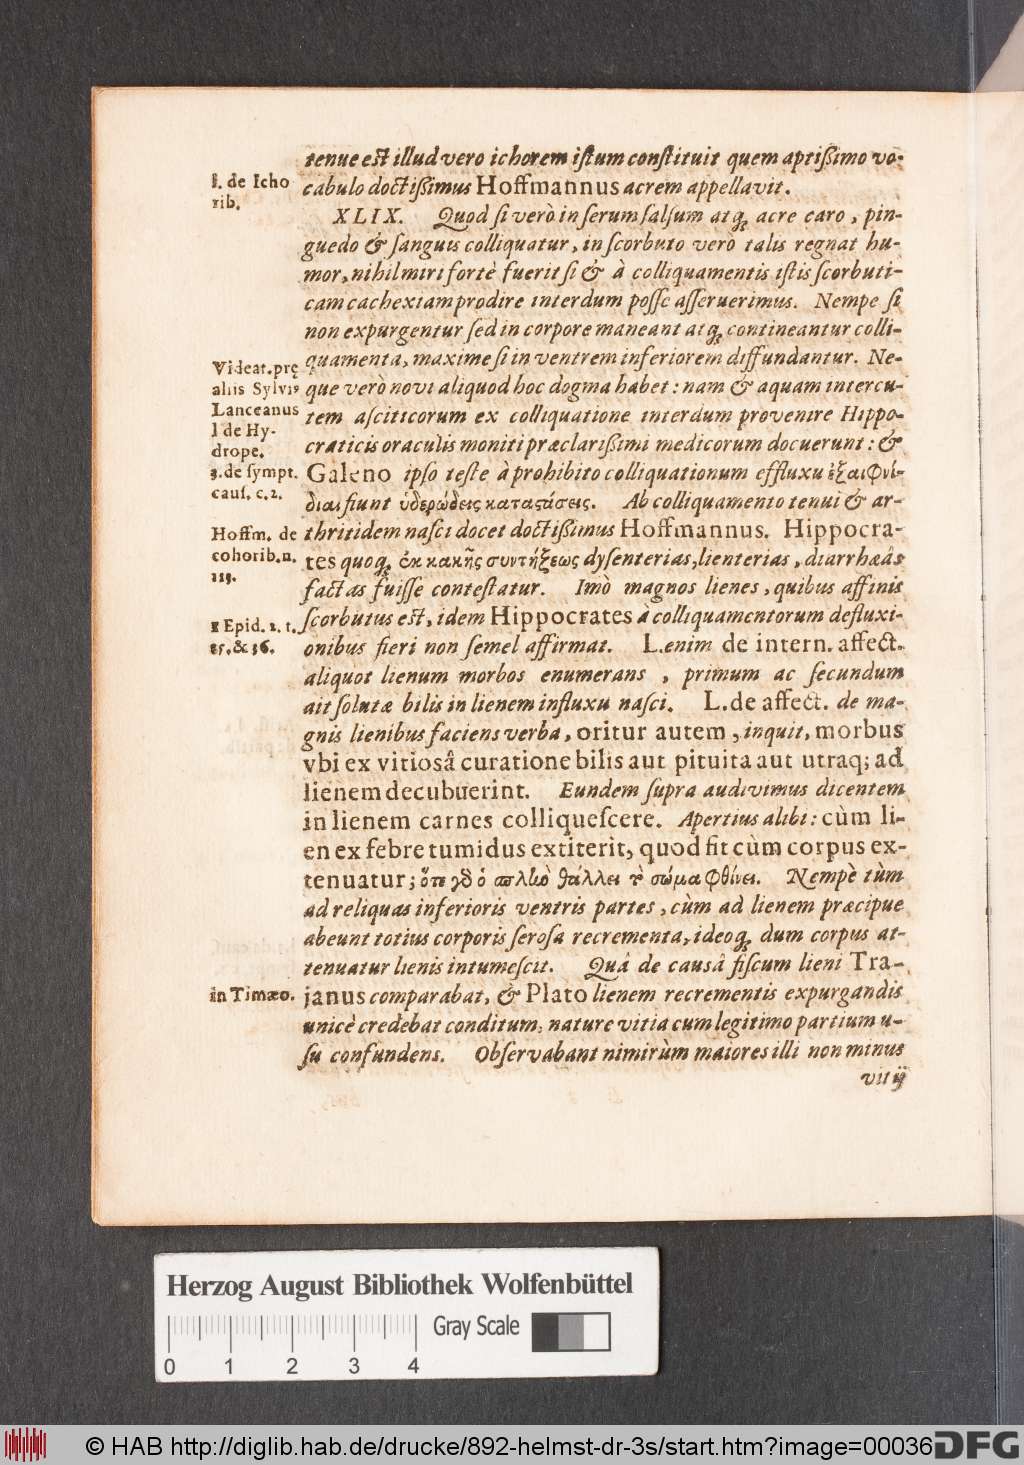 tenue est illud vero ichorem istum constituit quem aptißimo vo-
cabulo doctißimus Hoffmannus acrem appellavit.
l. de Icho
rib.
XLIX. Quod si verò in serum salsum atq; acre caro, pin-
guedo & sanguis colliquatur, in scorbuto verò talis regnat hu-
mor, nihil miri fortè fuerit si & à colliquamentis istis scorbuti-
cam cachexiam prodire interdum posse asseruerimus. Nempe si
non expurgentur sed in corpore maneant atq; contineantur colli-
quamenta, maxime si in ventrem inferiorem diffundantur. Ne-
que verò novi aliquod hoc dogma habet: nam & aquam intercu-
tem asciticorum ex colliquatione interdum provenire Hippo-
craticis oraculis moniti præclarißimi medicorum docuerunt: &
Videat. prę
aliis Sylvi9
Lanceanus
l de Hy-
drope.
Galeno ipso teste à prohibito colliquationum effluxu ἐξαιφνί-
διαι fiunt ὑδερώδεις καταϛάσεις. Ab colliquamento tenui & ar-
3. de sympt.
caus. c. 2.
thritidem nasci docet doctißimus Hoffmannus. Hippocra-
tes quoq; ἐκ κακῆς συντήξεως dysenterias, lienterias, diarrhæâs
factas fuisse contestatur. Imò magnos lienes, quibus affinis
Hoffm. de
eohorib. n.
119.
scorbutus est, idem Hippocrates à colliquamentorum defluxi-
onibus fieri non semel affirmat. L. enim de intern. affect.
Epid. 2. t.
25. & 36.
aliquot lienum morbos enumerans, primum ac secundum
ait solutæ bilis in lienem influxu nasci. L. de affect. de ma-
gnis lienibus faciens verba, oritur autem, inquit, morbus
vbi ex vitiosâ curatione bilis aut pituita aut utraq; ad
lienem decubuerint. Eundem supra audivimus dicentem
in lienem carnes colliquescere. Apertius alibi: cùm li-
en ex febre tumidus extiterit, quod fit cùm corpus ex-
tenuatur; ὅτε γὸ ὁ σπλὴν θάλλει τὸ σῶμα φθίνει. Nempè tùm
ad reliquas inferioris ventris partes, cùm ad lienem præcipue
abeunt totius corporis serosa recrementa, ideoq; dum corpus at-
tenuatur lienis intumescit. Quâ de causâ fiscum lieni Tra-
janus comparabat, & Plato lienem recrementis expurgandis
in Timæo.
unicè credebat conditum, nature vitia cum legitimo partium u-
su confundens. Observabant nimirùm maiores illi non minus
vitij
Herzog August Bibliothek Wolfenbüttel
Gray Scale
0 1 2 3 4
© HAB http://diglib.hab.de/drucke/892-helmst-dr-3s/start.htm?image=00036
DFG